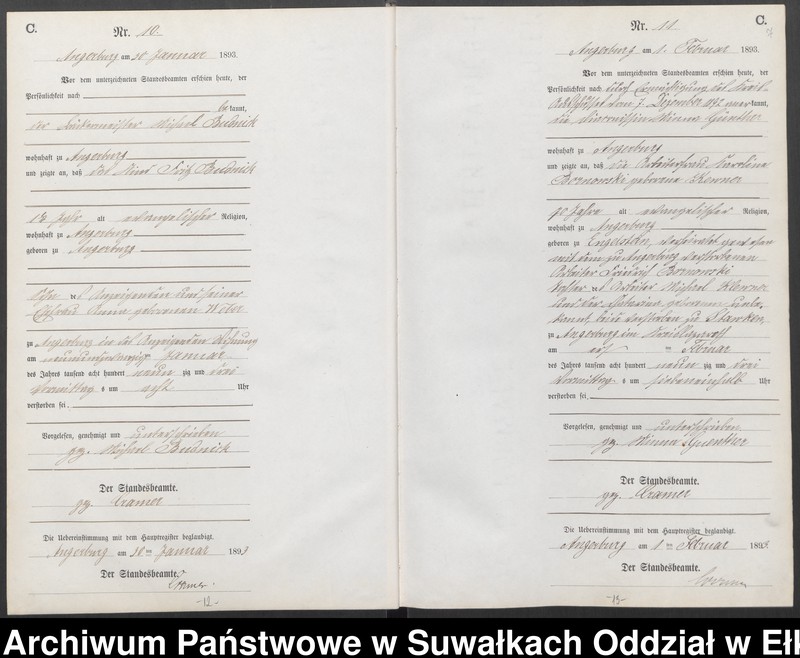 C.
Nr. 10.
Angerburg am 30 Januar 1893.
Vor dem unterzeichneten Standesbeamten erschien heute, der
Persönlichkeit nach
be kannt,
der Michael Budnick
wohnhaft zu Angerburg
und zeigte an, daß das Kind Fritz Budnick
alt evangelischer Religion,
wohnhaft zu Angerburg
geboren zu Angerburg
Sohn des Anzeigenden und seiner
Ehefrau Anna geborenen Weber
zu Angerburg in des Anzeigenden Wohnung
am neunundzwanzig Januar
des Jahres tausend acht hundert neun zig und drei
Vormittag s um acht Uhr
verstorben sei.
Vorgelesen, genehmigt und unterschrieben
gz. Michael Budnick
Der Standesbeamte.
gz. Cramer
Die Uebereinstimmung mit dem Hauptregister beglaubigt.
Angerburg am 30 ten Januar 1893
Der Standesbeamte.
Cramer.
-12-
C.
Nr. 11.
Angerburg am 1. Februar 1893.
Vor dem unterzeichneten Standesbeamten erschien heute, der
Persönlichkeit nach
vom 7. Dezember 1892 kannt,
die Minna Günther
wohnhaft zu Angerburg
und zeigte an, daß die Arbeiterfrau Karoline
Bornowski geborene
70 Jahre alt evangelischer Religion,
wohnhaft zu Angerburg
geboren zu Engelstein, verheiratet gewesen
mit dem zu Angerburg verstorbenen
Arbeiter Friedrich Bornowski
Tochter des Arbeiter Michael
beide verstorben zu
zu Angerburg im
am Februar
des Jahres tausend acht hundert neun zig und drei
Vormittag s um siebeneinhalb Uhr
verstorben sei.
Vorgelesen, genehmigt und unterschrieben
gz. Minna Guenther
Der Standesbeamte.
gz. Cramer
Die Uebereinstimmung mit dem Hauptregister beglaubigt.
Angerburg am 1 ten Februar 1893
Der Standesbeamte.
-13-
Archiwum Państwowe w Suwałkach Oddział w Ełk